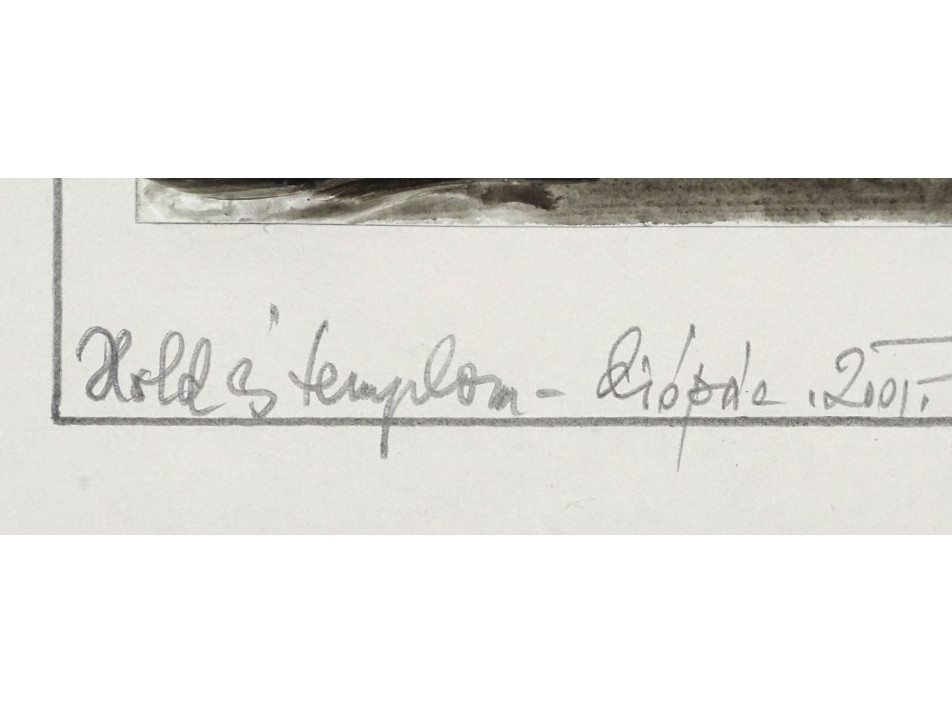 Hold és templom - Csópác . 2001.